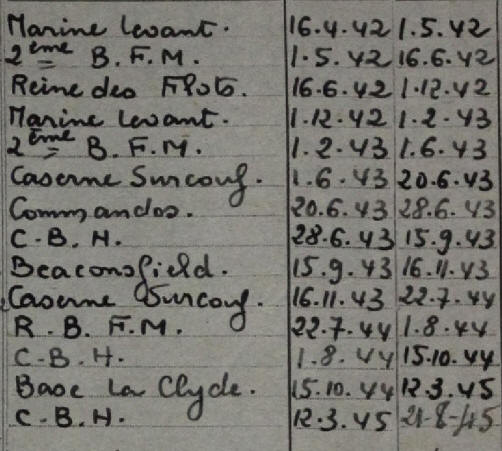 Marine Levant. 16.4.42 1.5.42
2ème B. F. M. 1.5.42 16.6.42
Reine des Flots. 16.6.42 1.12.42
Marine Levant. 1.12.42 1.2.43
2ème B. F. M. 1.2.43 1.6.43
Caserne Surcouf. 1.6.43 20.6.43
Commandos. 20.6.43 28.6.43
C.B.H. 28.6.43 15.9.43
Beaconsfield. 15.9.43 16.11.43
Caserne Surcouf. 16.11.43 22.7.44
R. B. F. M. 22.7.44 1.8.44
C.B.H. 1.8.44 15.10.44
Base La Clyde. 15.10.44 12.3.45
C.B.H. 12.3.45 21-8-45